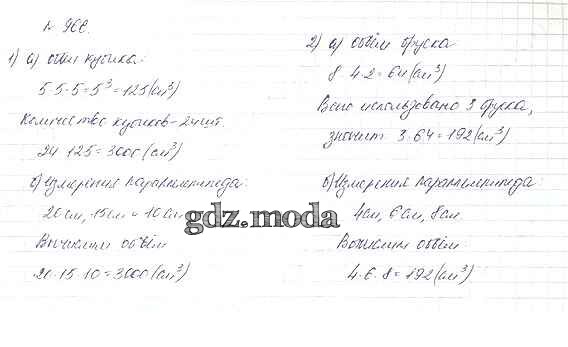 № 966.
1) а) объём кубика:
5·5·5=5³=125(см³)
Количество кубиков-24шт.
24·125=3000(см³)
б) Измерения параллелепипеда:
20см, 15см и 10см
Вычислим объём
20·15·10=3000(см³)
2) а) объём бруска
8·4·2=64(см³)
Всего использовано 3 бруска,
значит 3·64=192(см³)
б) Измерения параллелепипеда:
4см, 6см, 8см.
Вычислим объём:
4·6·8=192(см³)
gdz.moda